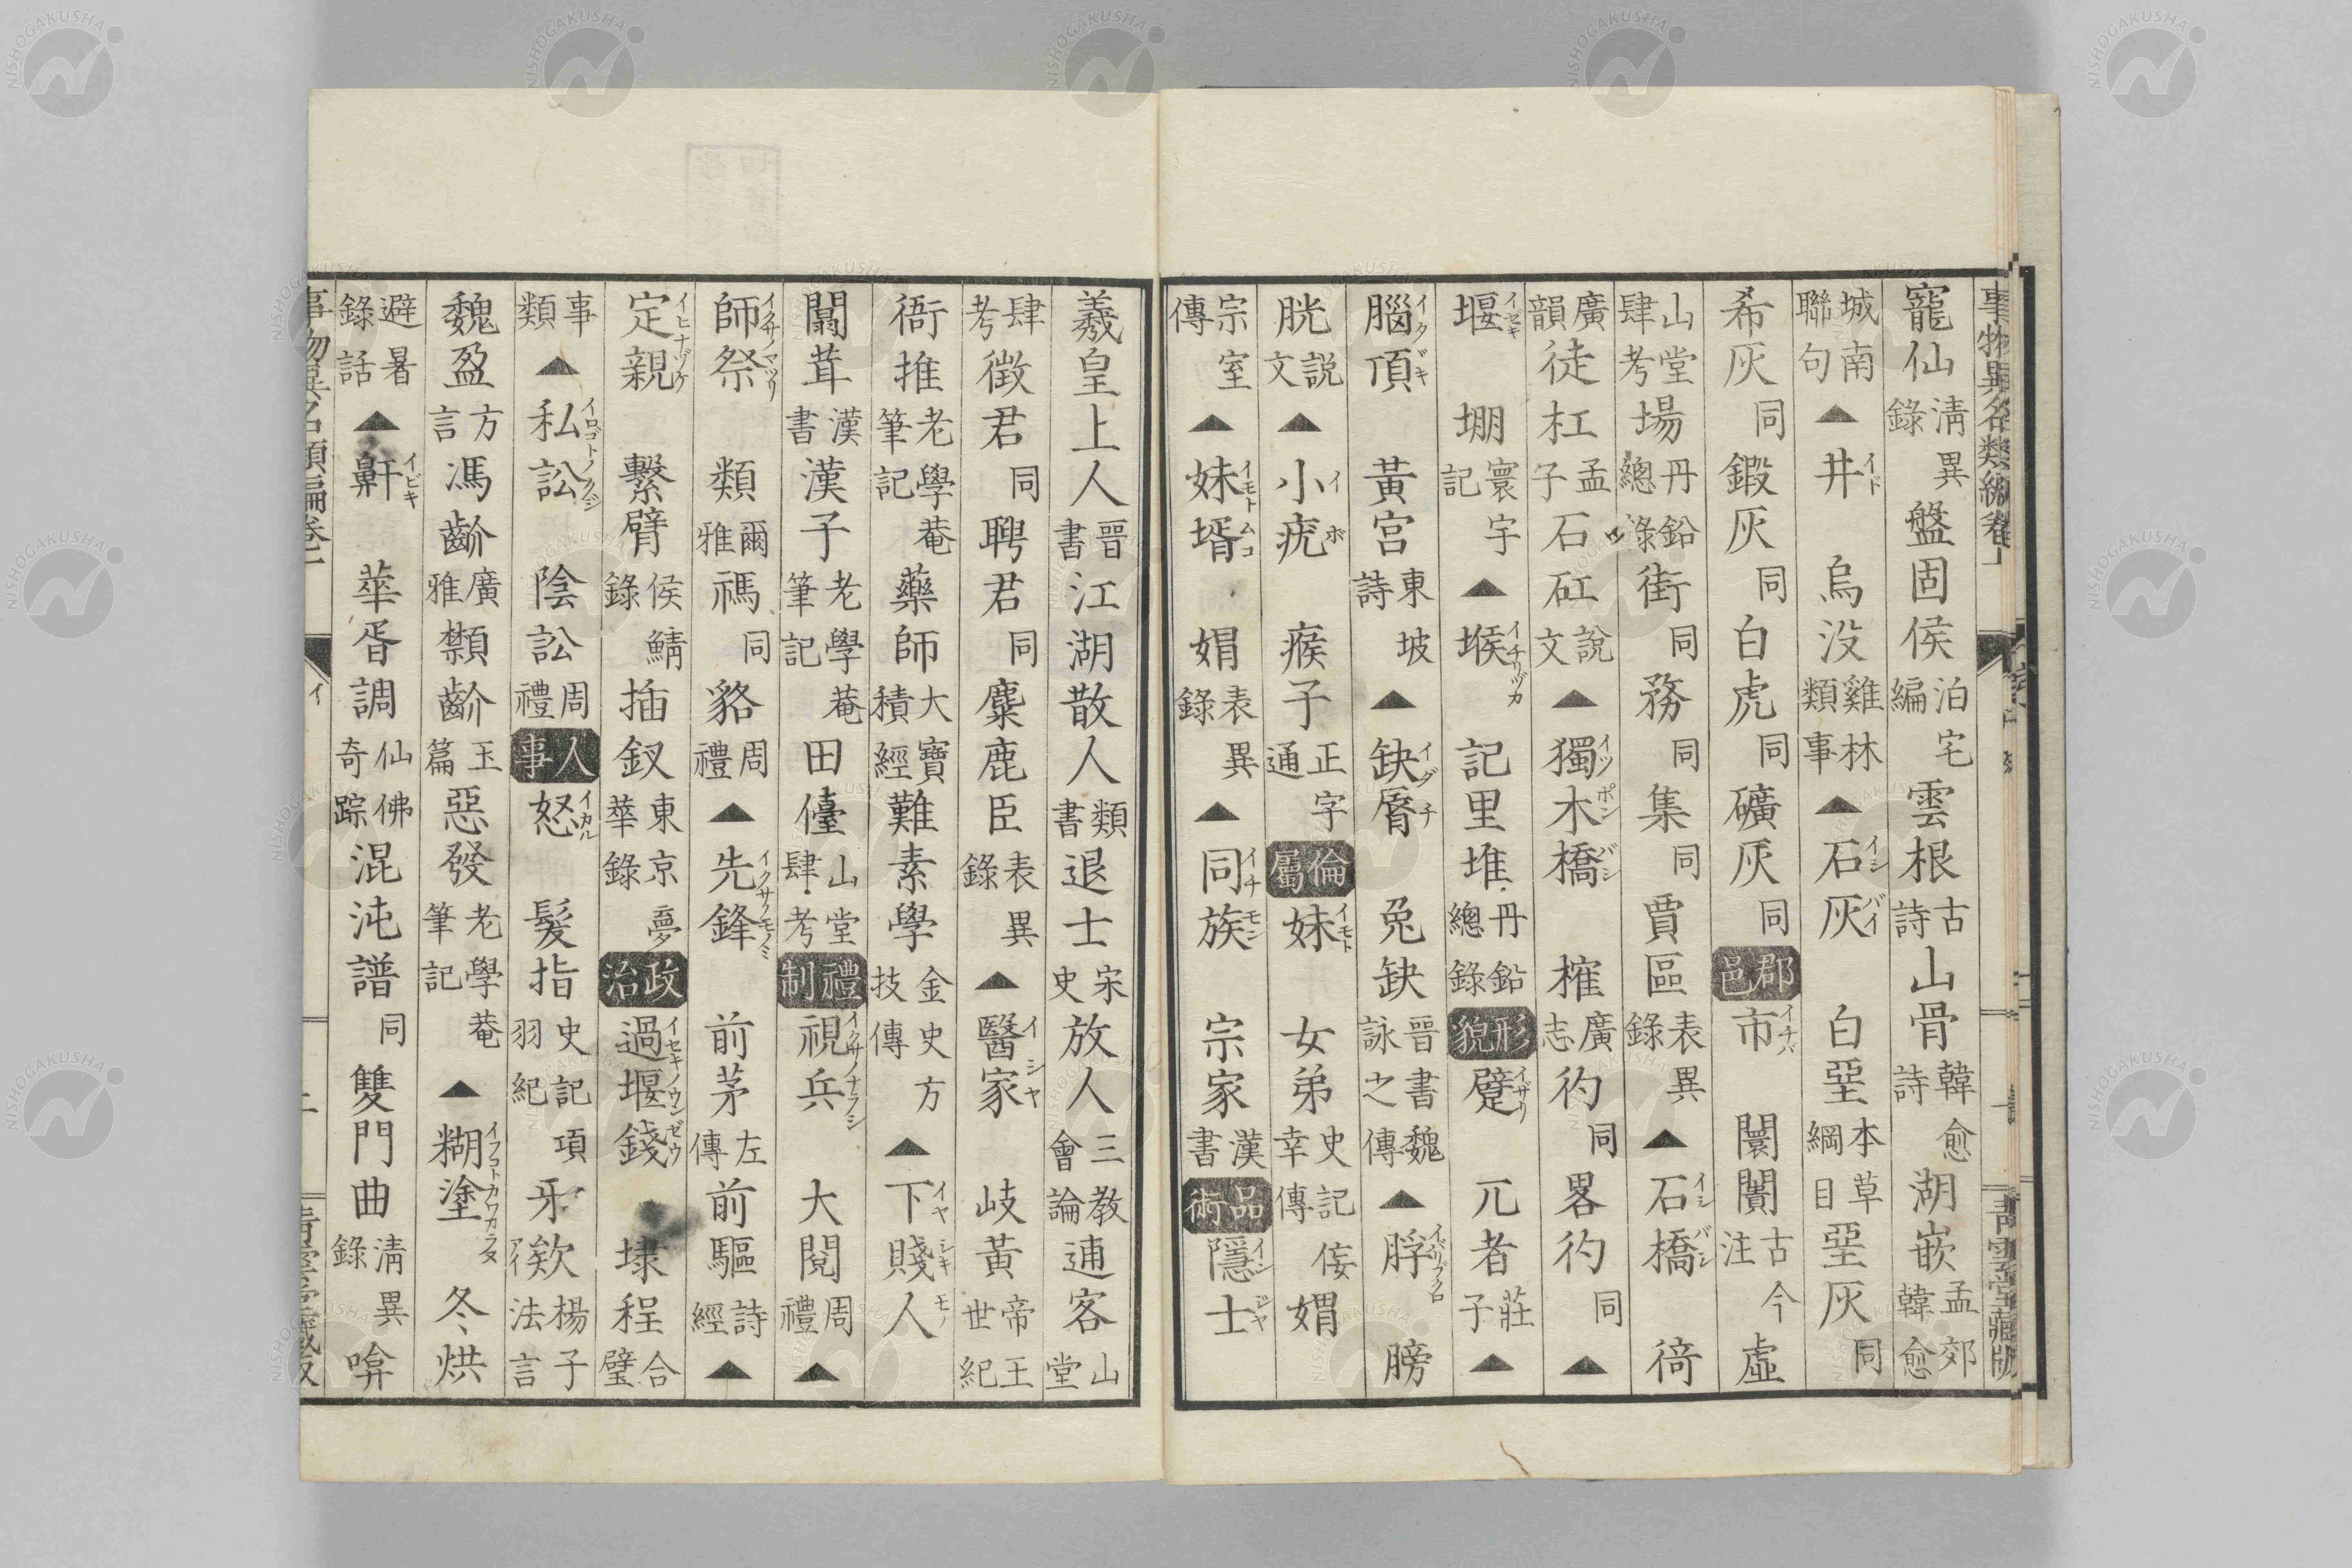 寵仙 清異錄 盤固侯 泊宅編 雲根 古詩 山骨 韓愈詩 湖嵌 孟郊韓愈
城南聯句 ▲井イド 烏没 雞林類事 ▲石灰イシバイ 白堊 本草綱目 堊灰 同
希灰 同 鍛灰 同 白虎 同 礦灰 同 郡邑 市イチバ 闤闠 古今注 虛
山堂肆考 場 丹鉛總錄 街 同 務 同 集 同 賈區 表異錄 ▲石橋イシバシ 徛
廣韻 徒杠 孟子 石矼 說文 ▲獨木橋イツポンバシ 榷 廣志 彴 同 畧彴 同 ▲
堰イセキ 堋 寰宇記 ▲堠イチリヅカ 記里堆 丹鉛總錄 形貌 躄イザリ 兀者 莊子 ▲
腦頂イタヾキ 黃宮 東坡詩 ▲缺脣イグチ 兔缺 晉書魏詠之傳 ▲脬イバリブクロ 膀
胱 說文 ▲小疣イボ 瘊子 正字通 倫屬 妹イモト 女弟 史記佞幸傳 媦
宗室傳 ▲妹壻イモトムコ 娟 表異錄 ▲同族イチモン 宗家 漢書 品術 隱士インジヤ
羲皇上人 晉書 江湖散人 類書 退士 宋史 放人 三教論會 逋客 山堂
肆考 徵君 同 聘君 同 麋鹿臣 表異錄 ▲醫家イシヤ 岐黃 帝王世紀
衙推 老學菴筆記 藥師 大寶積經 難素學 金史方技傳 ▲下賤人イヤシキモノ
闒茸 漢書 漢子 老學菴筆記 田儓 山堂肆考 禮制 視兵イクサノナラシ 大閱 周禮 ▲
師祭イクサノマツリ 類 爾雅 禡 同 貉 周禮 ▲先鋒イクサノモノミ 前茅 左傳 前驅 詩經 ▲
定親イヒナヅケ 繫臂 侯鯖錄 插釵 東京夢華錄 政治 過堰錢イセキノウンゼウ 埭程 合璧
事類 ▲私訟イロゴトノクジ 陰訟 周禮 人事 怒イカル 髮指 史記項羽紀 牙欸アイ 楊子法言
魏盈 方言 馮齘 廣雅 顡齘 玉篇 惡發 老學菴筆記 ▲糊塗イフコトカワカラヌ 冬烘
避暑錄話 ▲鼾イビキ 華胥調 仙佛奇踪 混沌譜 同 雙門曲 清異錄 嗋